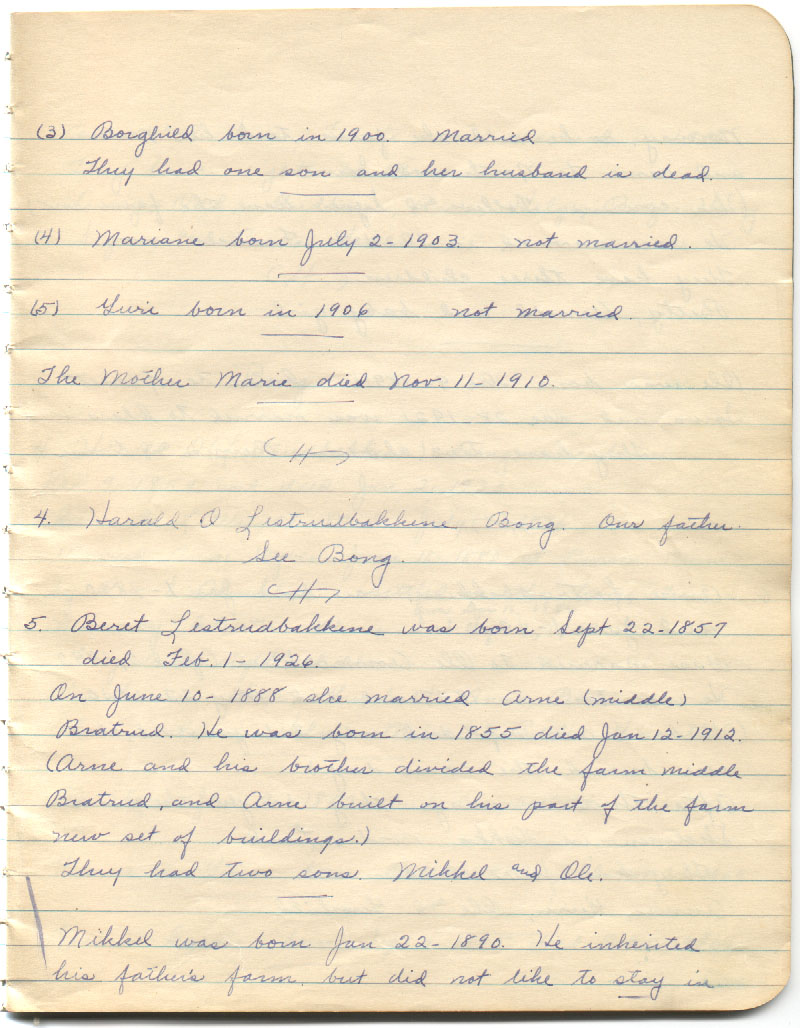 (3) Borghild born in 1900. Married
They had one son and her husband is dead.
(4) Mariane born July 2-1903. not married.
(5) Guri born in 1906 not married.
The Mother Marie died Nov. 11-1910.
4. Harald O Lestrudbakkene Bong. Our father.
See Bong.
5. Beret Lestrudbakkene was born Sept 22-1857
died Feb. 1-1926.
On June 10-1888 she married Arne (middle)
Bratrud. He was born in 1855 died Jan 12-1912.
(Arne and his brother divided the farm middle
Bratrud, and Arne built on his part of the farm
new set of buildings.)
They had two sons. Mikkel and Ole.
Mikkel was born Jan 22-1890. He inherited
his father's farm. but did not like to stay in